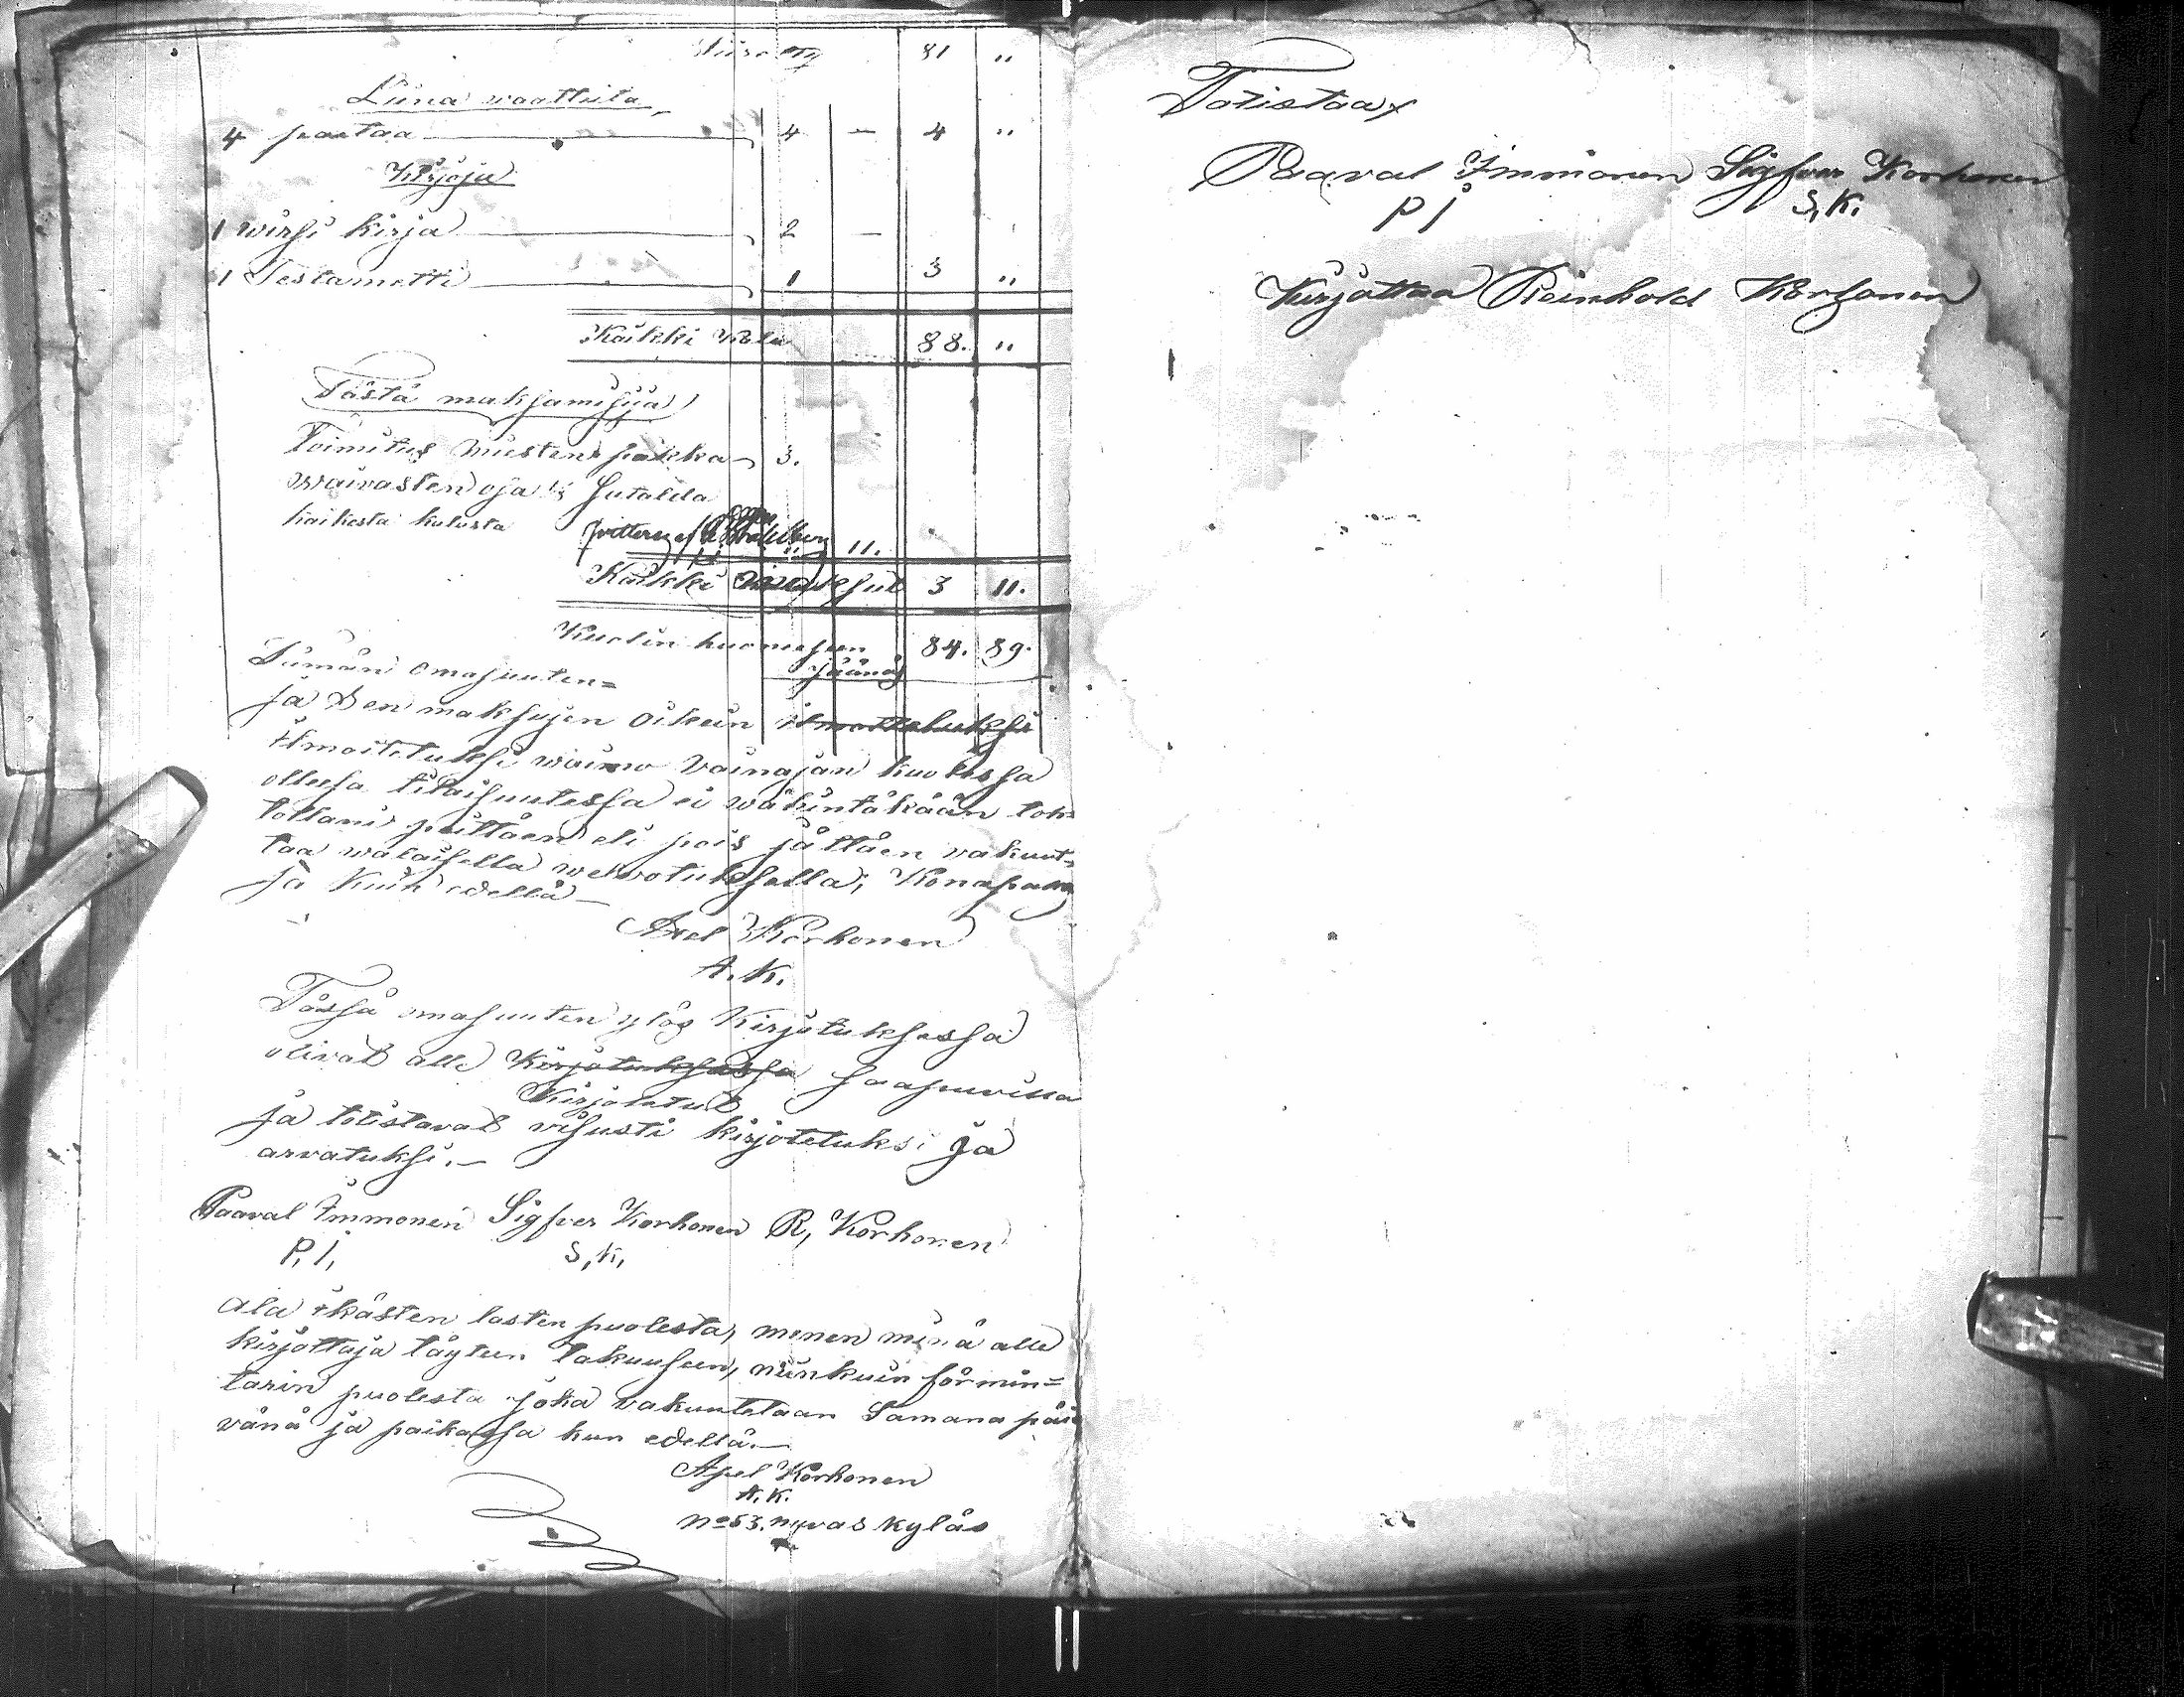 Siiretty 81 "
Liina waatteita
4 paitaa 4 — 4 "
Kirjoja
1 wirsi kirja 2 —
1 Testametti 1 3 "
Kaikki Kalu 88. "
Tästä maksamisija
Toimitus miesten palkka 3.
waivasten osa 1/8 satalda
kaikesta kalusta
11.
Kaikki maksut 3 11.
Kuolin huonehen 84. 89.
jäänös
Tämän omasuuten=
ja Den maksujen oikein ilmottetuksi
ilmoitetuksi waimo vainajan kuolessa
ollessa tilaisuutessa ei wähintäkään toh=
tollani peittäen eli pois jättäen vakuut=
taa walaisella welwotuksella;
ja kuin edellä —
Axel Korhonen
A. K.
Tässä omasuuten ylös kirjotuksessa
olivat alle Kirjotuksessa saapuvilla
Kirjotetut
ja totistavat visusti kirjotetuksi ja
arvatuksi. —
Paaval Immonen Sigfver Korhonen R, Korhonen
P. I, S, K,
Ala ikästen lasten puolesta, menen minä alle
kirjottaja täyteen takuuseen, niinkuin förmin=
tarin puolesta joka vakuutetaan Samana päi=
vänä ja paikassa kun edellä. —
Axel Korhonen
A. K.
No 53. kyläs
Totistaa
Paaval Immonen Sigfver Korhonen
P I S, K.
Kirjottaa Reinhold Korhonen